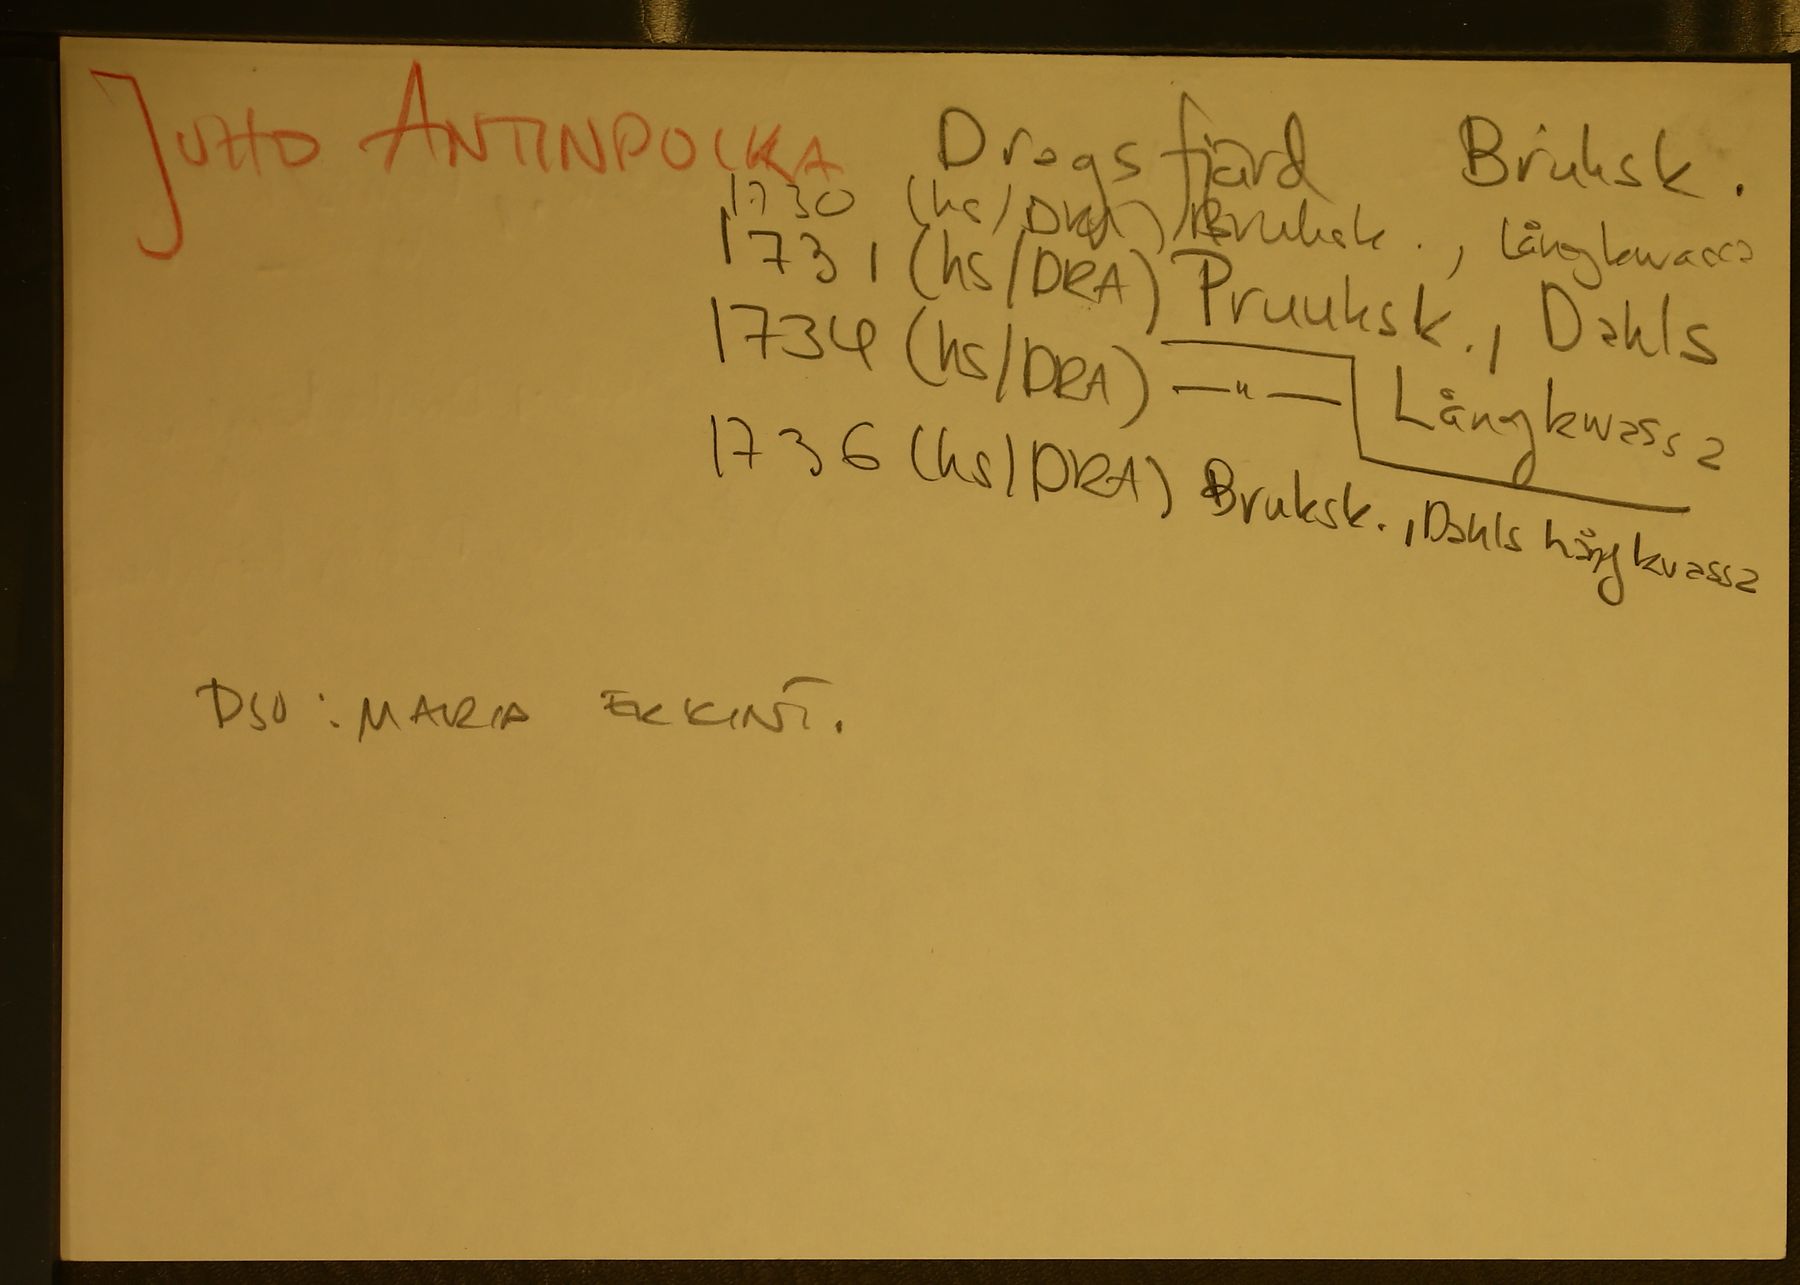 JUHO ANTINPOIKA Dragsfjärd Bruksk.
1730 (hs/DRA) Bruksk., Långkwassa
1731 (hs/DRA) Pruuksk., Dahls
1734 (hs/DRA) —"— Långkwassa
1736 (hs/DRA) Bruksk., Dahls Långkvassa
PSO: MARIA ERKINT.